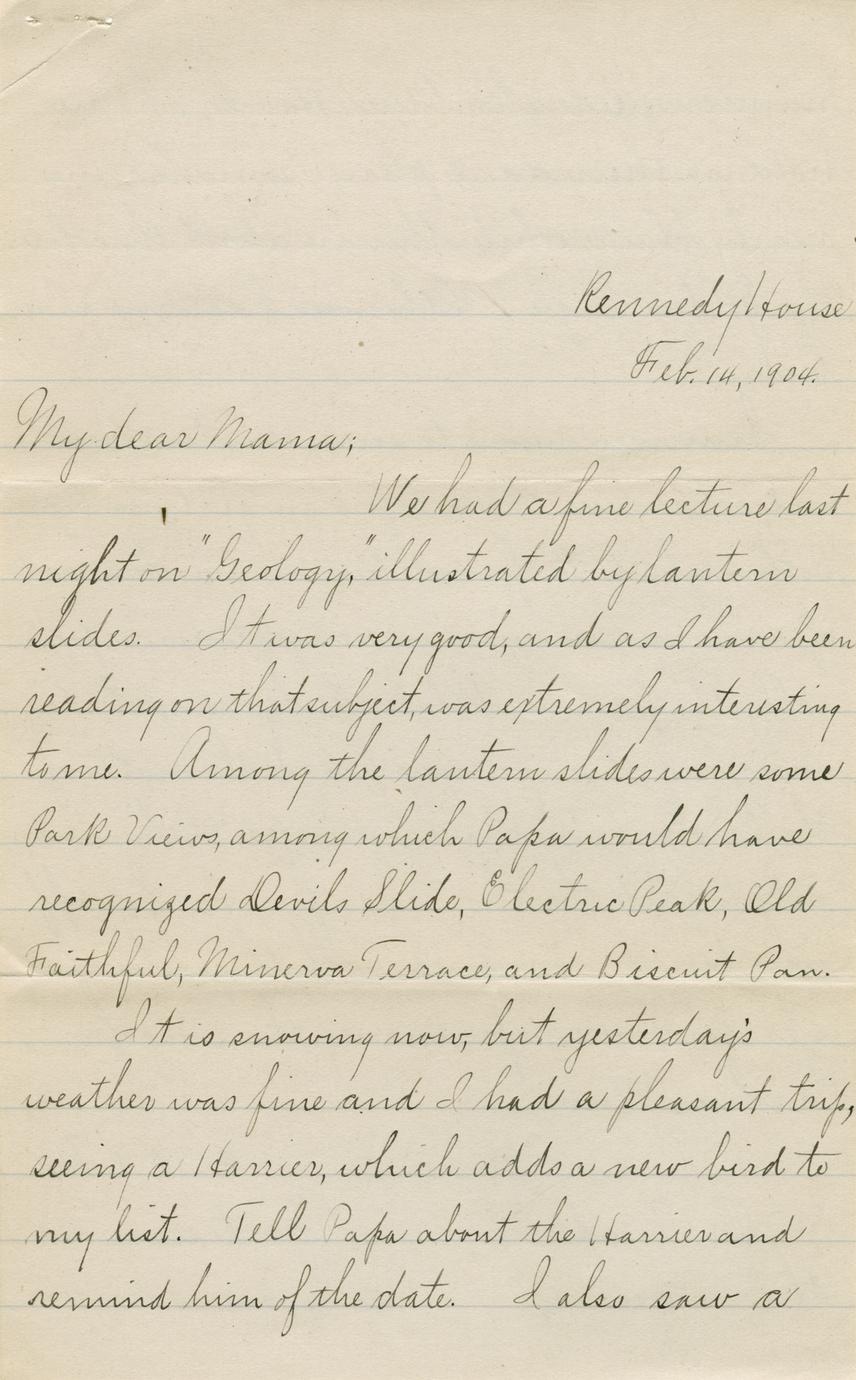 Kennedy House
Feb. 14, 1904.
My dear Mama;
We had a fine lecture last
night on "Geology," illustrated by lantern
slides. It was very good, and as I have been
reading on that subject, was extremely interesting
to me. Among the lantern slides were some
Park Views, among which Papa would have
recognized Devils Slide, Electric Peak, Old
Faithful, Minerva Terrace, and Biscuit Pan.
It is snowing now, but yesterday's
weather was fine and I had a pleasant trip,
seeing a Harrier, which adds a new bird to
my list. Tell Papa about the Harrier and
remind him of the date. I also saw a